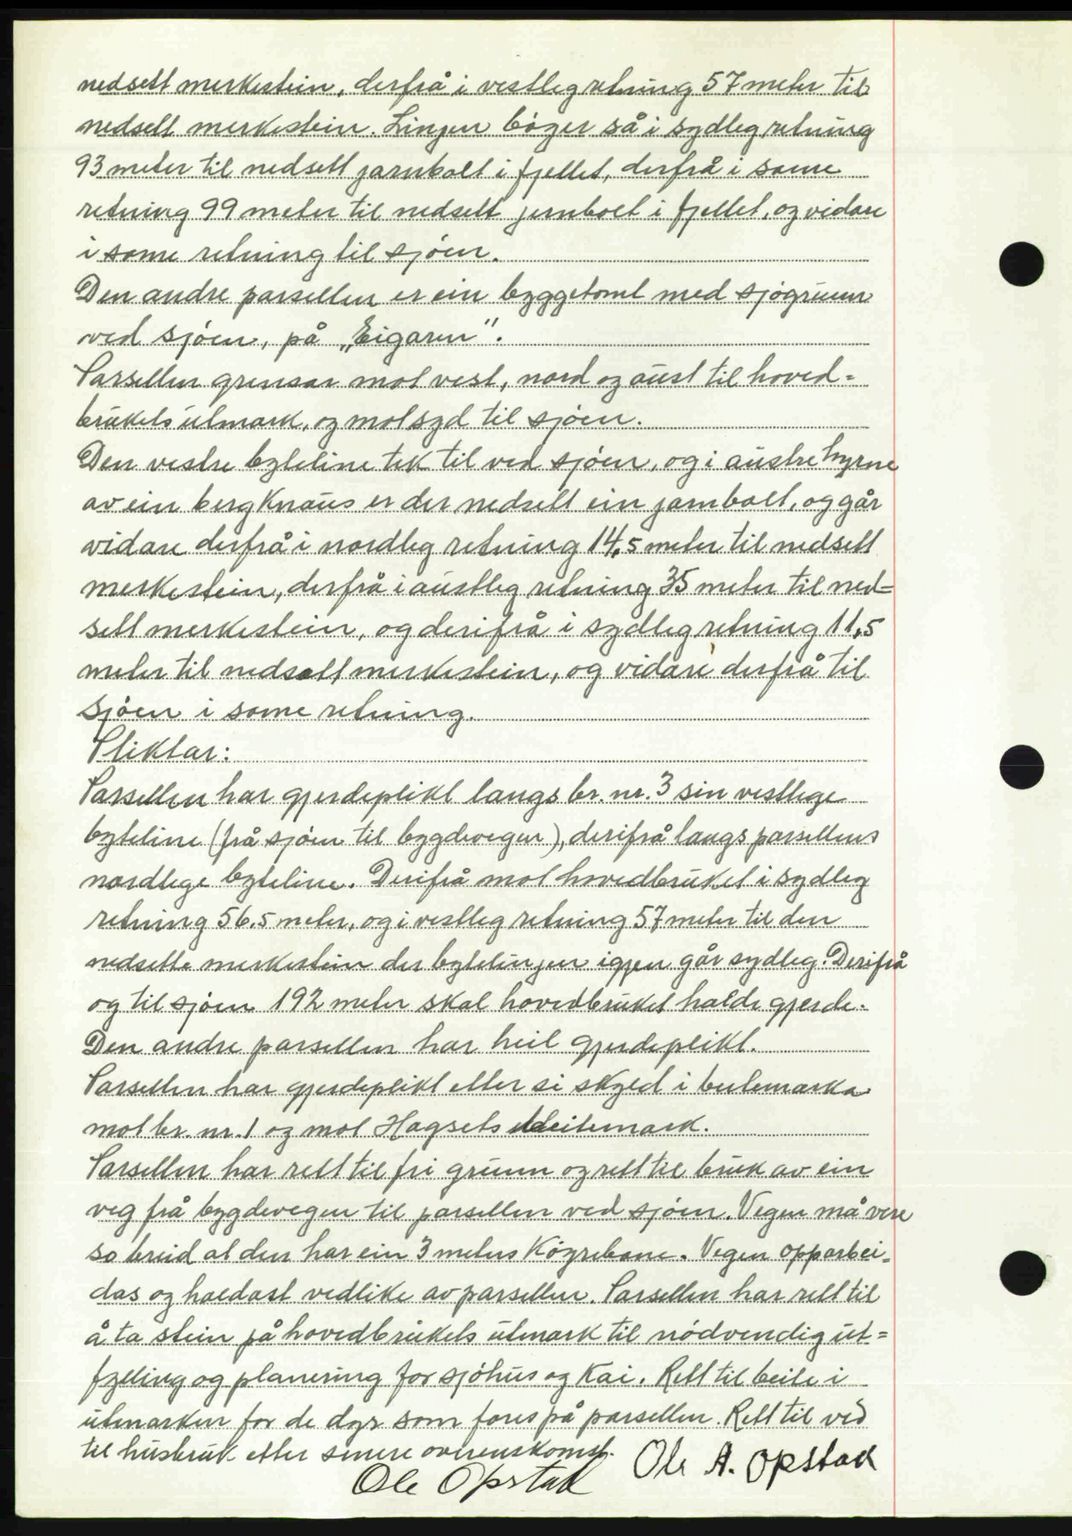 nedsett merkestein, derfrå i vestleg retning 57 meter til
nedsett merkestein. Linjen böger så i sydleg retning
93 meter til nedsett jarnbolt i fjellet, derfrå i same
retning 99 meter til nedsett jernbolt i fjellet, og vidare
i same retning til sjöen.
Den andre parsellen er ein byggetomt med sjögrunn
ved sjöen, på „Eigaren".
Parsellen grensar mot vest, nord og aust til hoved-
brukets utmark, og mot syd til sjöen.
Den vestre byteline tek til ved sjöen, og i austre hyrne
av ein bergknaus er der nedsett ein jarnbolt, og går
vidare derfrå i nordleg retning 14,5 meter til nedsett
merkestein, derfrå i austleg retning 35 meter til ned-
sett merkestein, og derifrå i sydleg retning 11,5
meter til nedsett merkestein, og vidare derfrå til
sjöen i same retning.
Pliktar:
Parsellen har gjerdeplikt langs br. nr. 3 sin vestlege
byteline (frå sjöen til bygdevegen), derifrå langs parsellens
nordlege byteline. Derifrå mot hovedbruket i sydleg
retning 56,5 meter, og i vestleg retning 57 meter til den
nedsette merkestein der bytelinjen igjen går sydleg. Derifrå
og til sjöen 192 meter skal hovedbruket halde gjerde.
Den andre parsellen har heil gjerdeplikt.
Parsellen har gjerdeplikt etter si skyld i beitemarka
mot br. nr. 1 og mot Hagsets beitemark.
Parsellen har rett til fri grunn og rett til bruk av ein
veg frå bygdevegen til parsellen ved sjöen. Vegen må vere
so breid at den har ein 3 meters kögrebane. Vegen opparbei-
das og haldast vedlike av parsellen. Parsellen har rett til
å ta stein på hovedbrukets utmark til nödvendig ut-
fylling og planering for sjöhus og kai. Rett til beite i
utmarken for de dyr som fores på parsellen. Rett til ved
til husbruk etter senere overenskomst.
Ole Opstad Ole A. Opstad